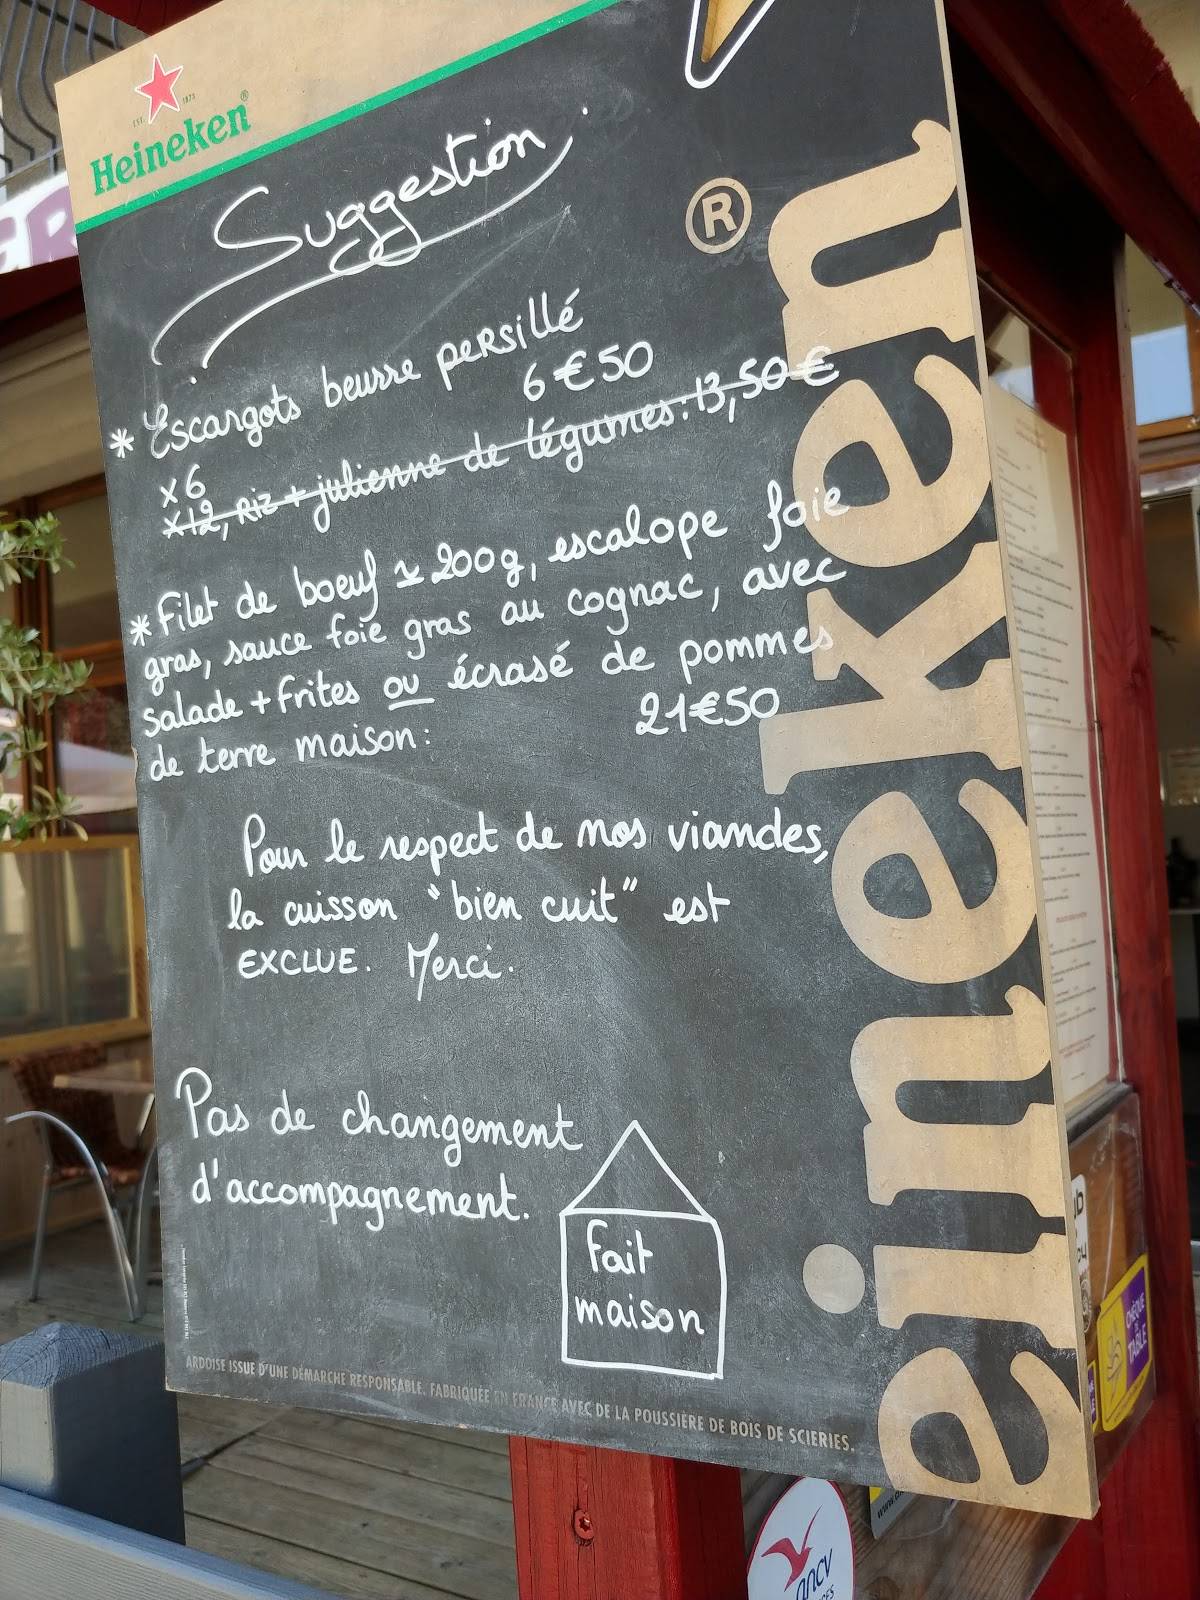 EST. 1873
Heineken®
Suggestion
* Escargots beurre persillé
x6 6€50
x12, Riz + julienne de légumes : 13,50 €
* Filet de boeuf ± 200g, escalope foie
gras, sauce foie gras au cognac, avec
salade + frites ou écrasé de pommes
de terre maison : 21€50
Pour le respect de nos viandes,
la cuisson "bien cuit" est
EXCLUE. Merci.
Pas de changement
d'accompagnement.
Fait
maison
ARDOISE ISSUE D'UNE DÉMARCHE RESPONSABLE. FABRIQUÉE EN FRANCE AVEC DE LA POUSSIÈRE DE BOIS DE SCIERIES.
eineken®
CHÈQUE DE TABLE
ancv